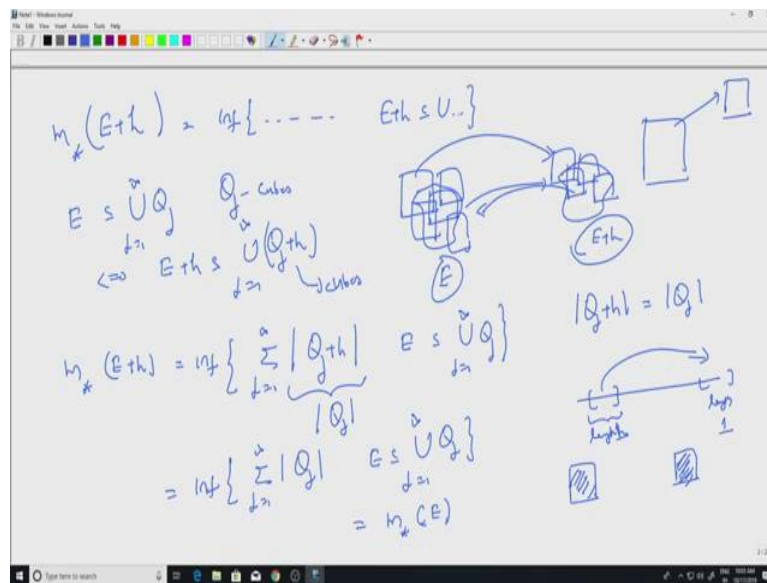 Note1 - Windows Journal
File Edit View Insert Actions Tools Help
m_* (E+h) = inf { ------ E+h ⊆ U... }
E ⊆ ∞∪j=1 Q_j   Q_j - cubes
<=> E+h ⊆ ∞∪j=1 (Q_j+h)
↳ cubes
E
E+h
|Q_j+h| = |Q_j|
m_* (E+h) = inf { ∞Σj=1 |Q_j+h|   E ⊆ ∞∪j=1 Q_j }
|Q_j|
= inf { ∞Σj=1 |Q_j|   E ⊆ ∞∪j=1 Q_j }
= m_* (E)
[ ]
1
Type here to search